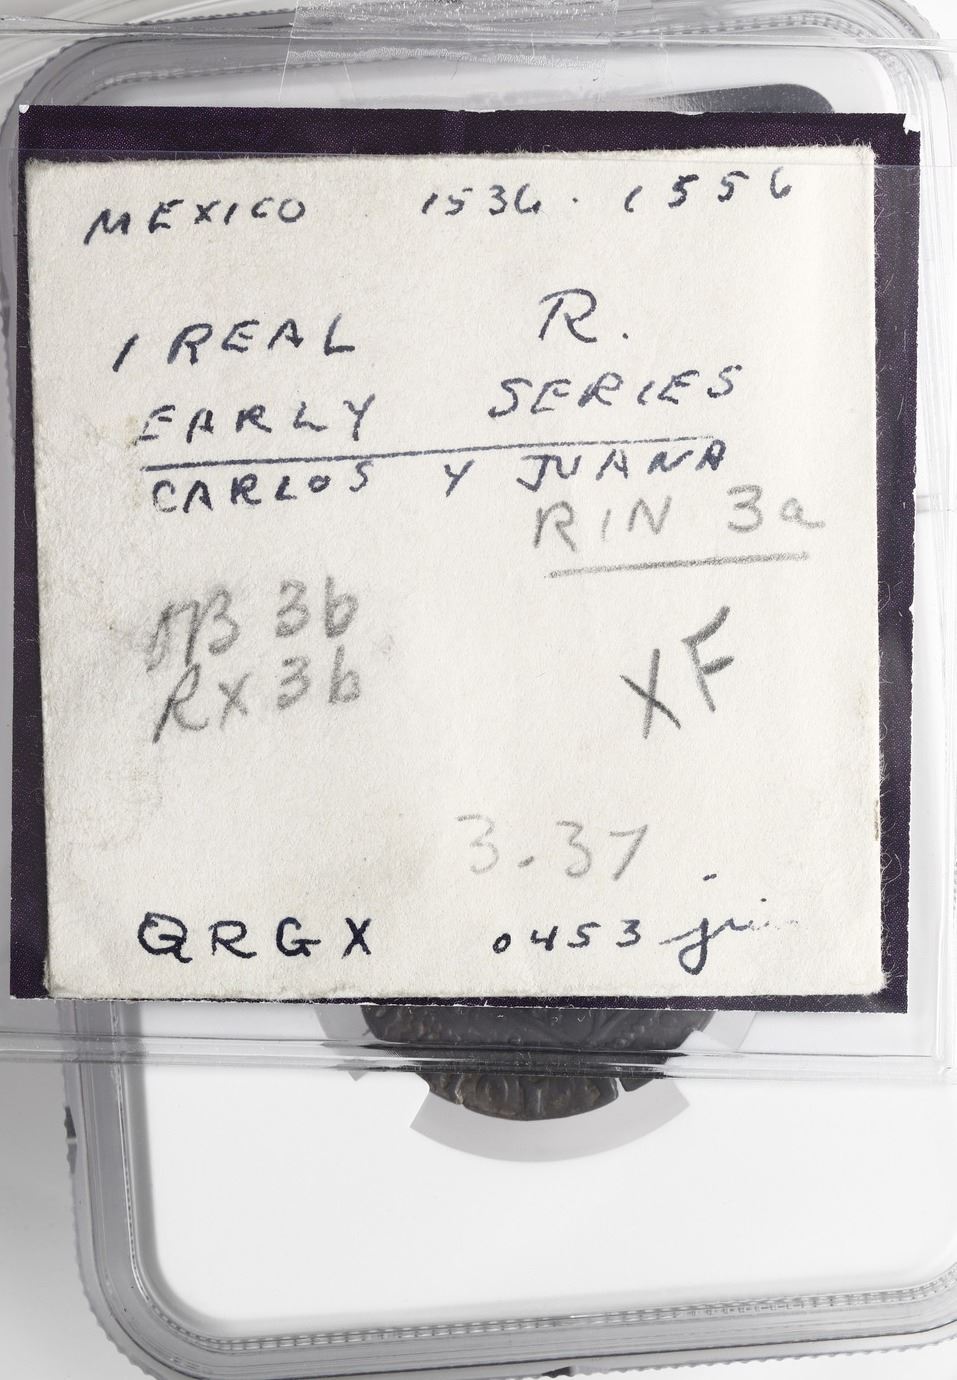 MEXICO 1536 · 1556
1 REAL R.
EARLY SERIES
CARLOS Y JUANA
RIN 3a
3b
RX 3b
XF
3.37
QRGX 0453